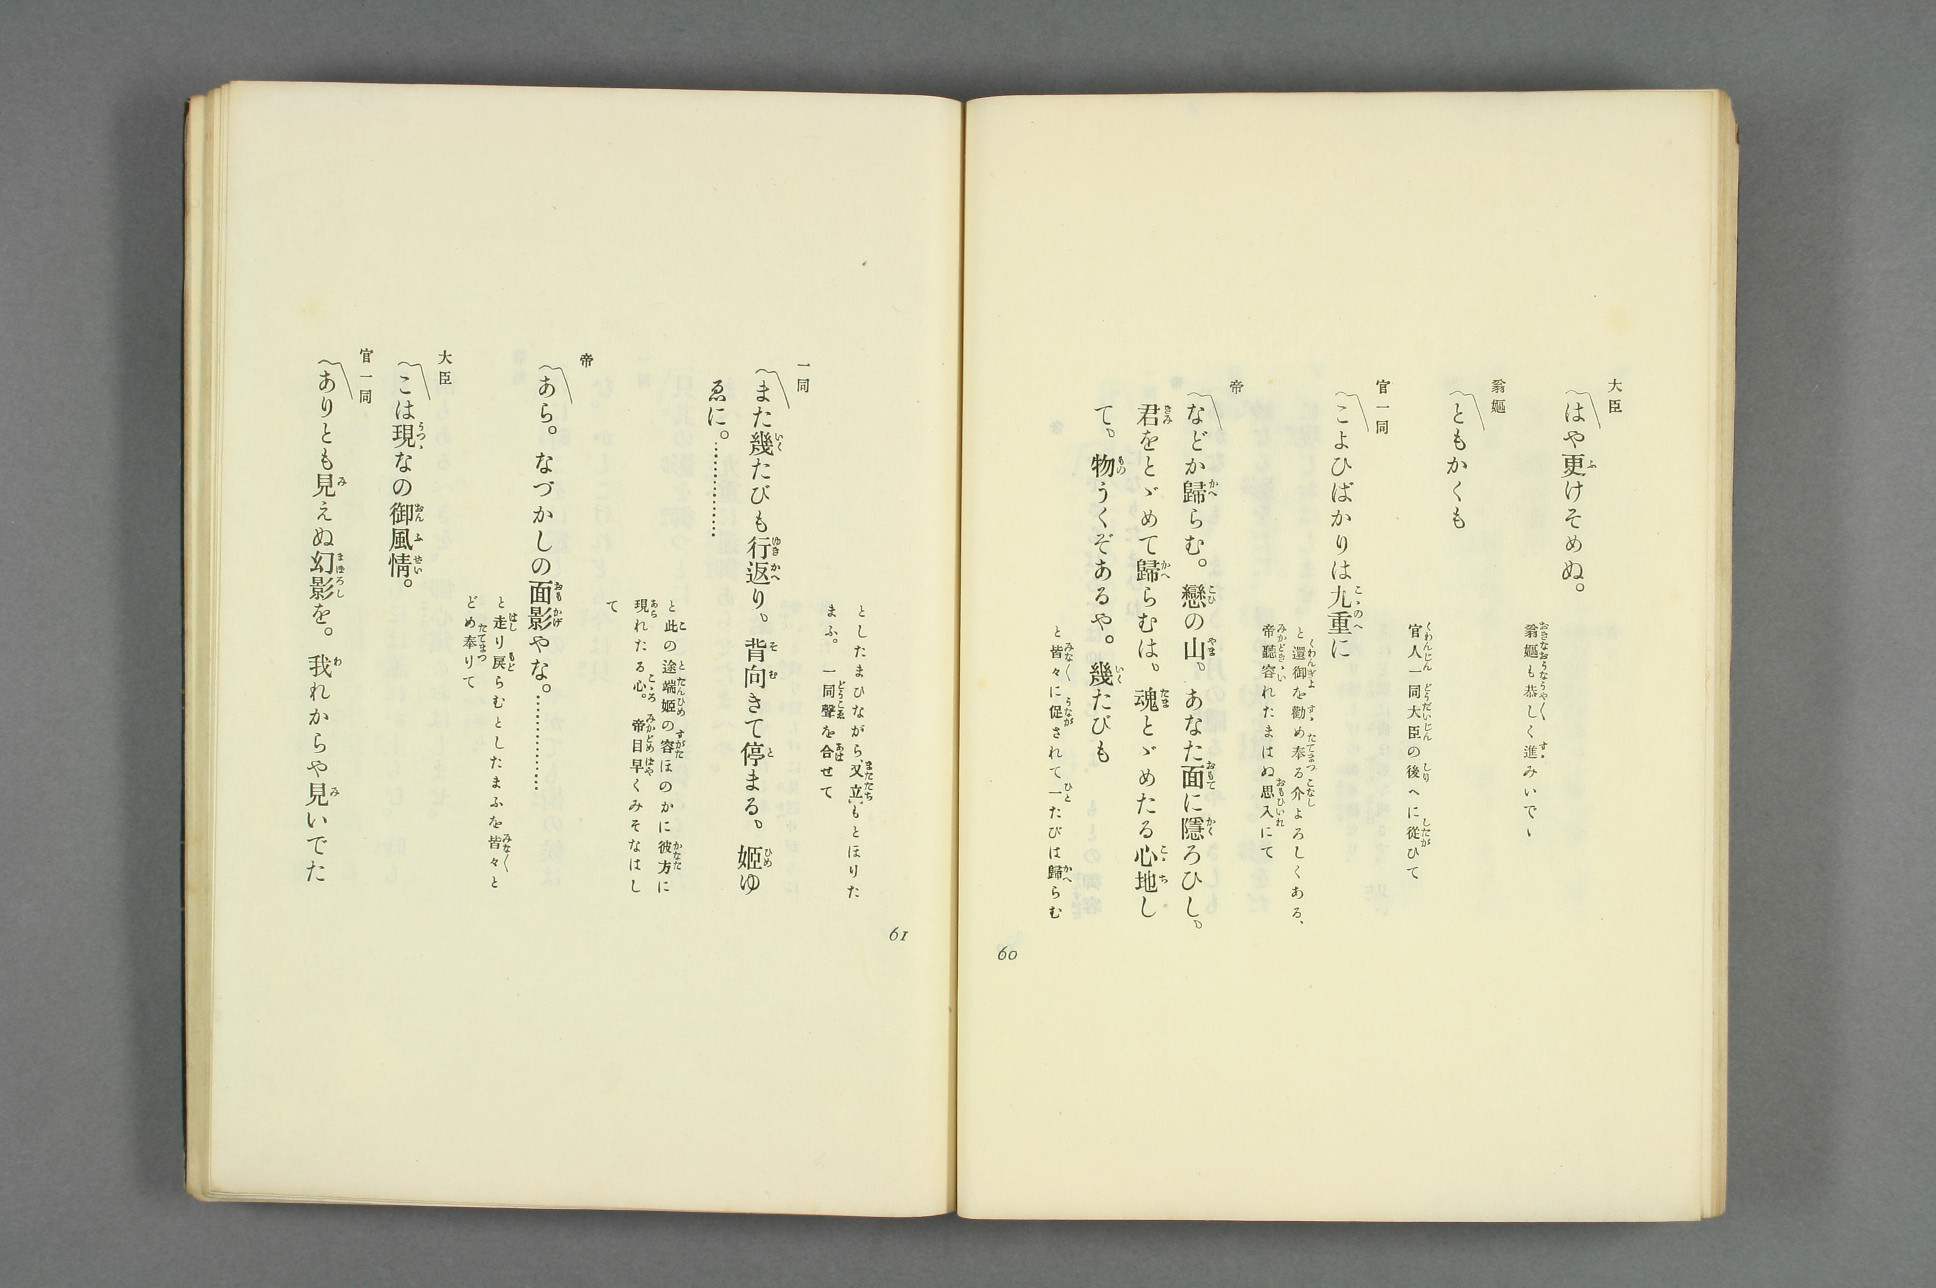 大臣
〽はや更けそめぬ。
翁嫗も恭しく進みいでゝ
翁嫗
〽ともかくも
官人一同大臣の後へに從ひて
官一同
〽こよひばかりは九重に
と還御を勸め奉る介よろしくある、
帝聽容れたまはぬ思入にて
帝
〽などか歸らむ。戀の山。あなた面に隱ろひし。
君をとゞめて歸らむは。魂とゞめたる心地し
て。物うくぞあるや。幾たびも
と皆々に促されて一たびは歸らむ
60
としたまひながら、又立もとほりた
まふ。一同聲を合せて
一同
〽また幾たびも行返り。背向きて停まる。姫ゆ
ゑに。…………
と此の途端姫の容ほのかに彼方に
現れたる心。帝目早くみそなはし
て
帝
〽あら。なづかしの面影やな。…………
と走り戻らむとしたまふを皆々と
どめ奉りて
大臣
〽こは現なの御風情。
官一同
〽ありとも見えぬ幻影を。我れからや見いでた
61